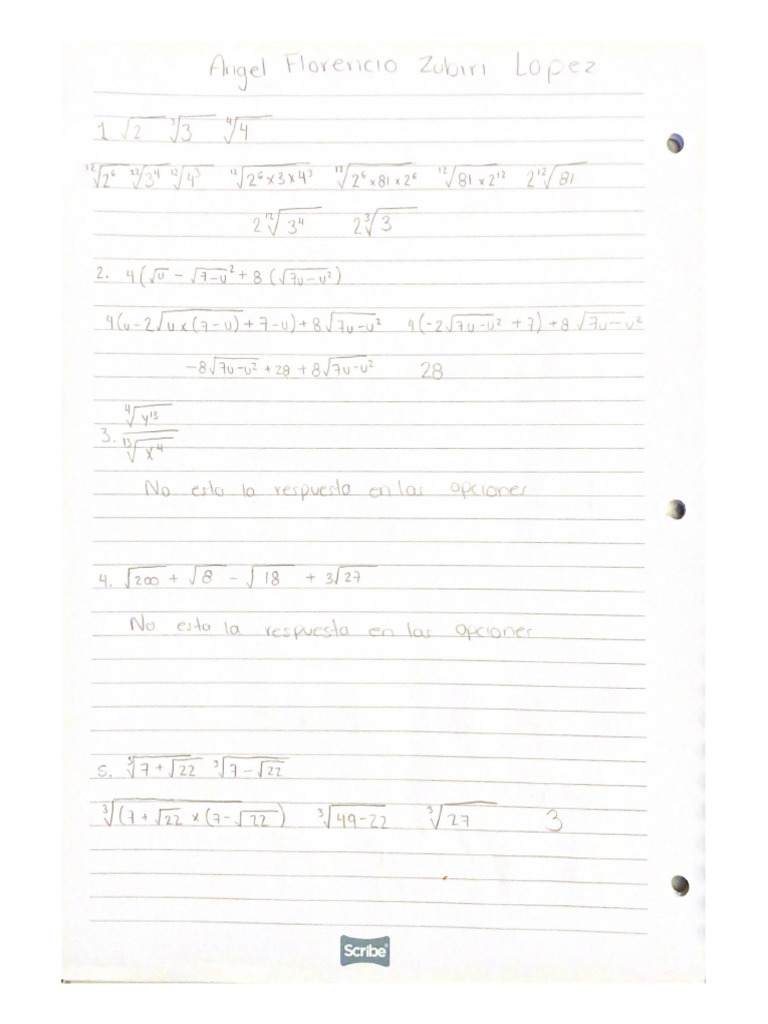 Angel Florencio Zubiri Lopez
1 √2 ∛3 ∜4
¹²√2⁶ ¹²√3⁴ ¹²√4³ ¹²√2⁶×3×4³ ¹²√2⁶×81×2⁶ ¹²√81×2¹² 2 ¹²√81
2 ¹²√3⁴ 2 ∛3
2. 4(√u - √7-u² + 8 (√7u-u²)
4(u-2√u×(7-u) + 7-u) + 8√7u-u² 4(-2√7u-u² + 7) + 8 √7u-u²
-8√7u-u² + 28 + 8√7u-u² 28
3. ∜y¹³ / ¹³√x⁴
No esta la respuesta en las opciones
4. √200 + √8 - √18 + 3√27
No esta la respuesta en las opciones
5. ∛7+√22 ∛7-√22
∛(7+√22 × (7-√22) ∛49-22 ∛27 3
Scribe